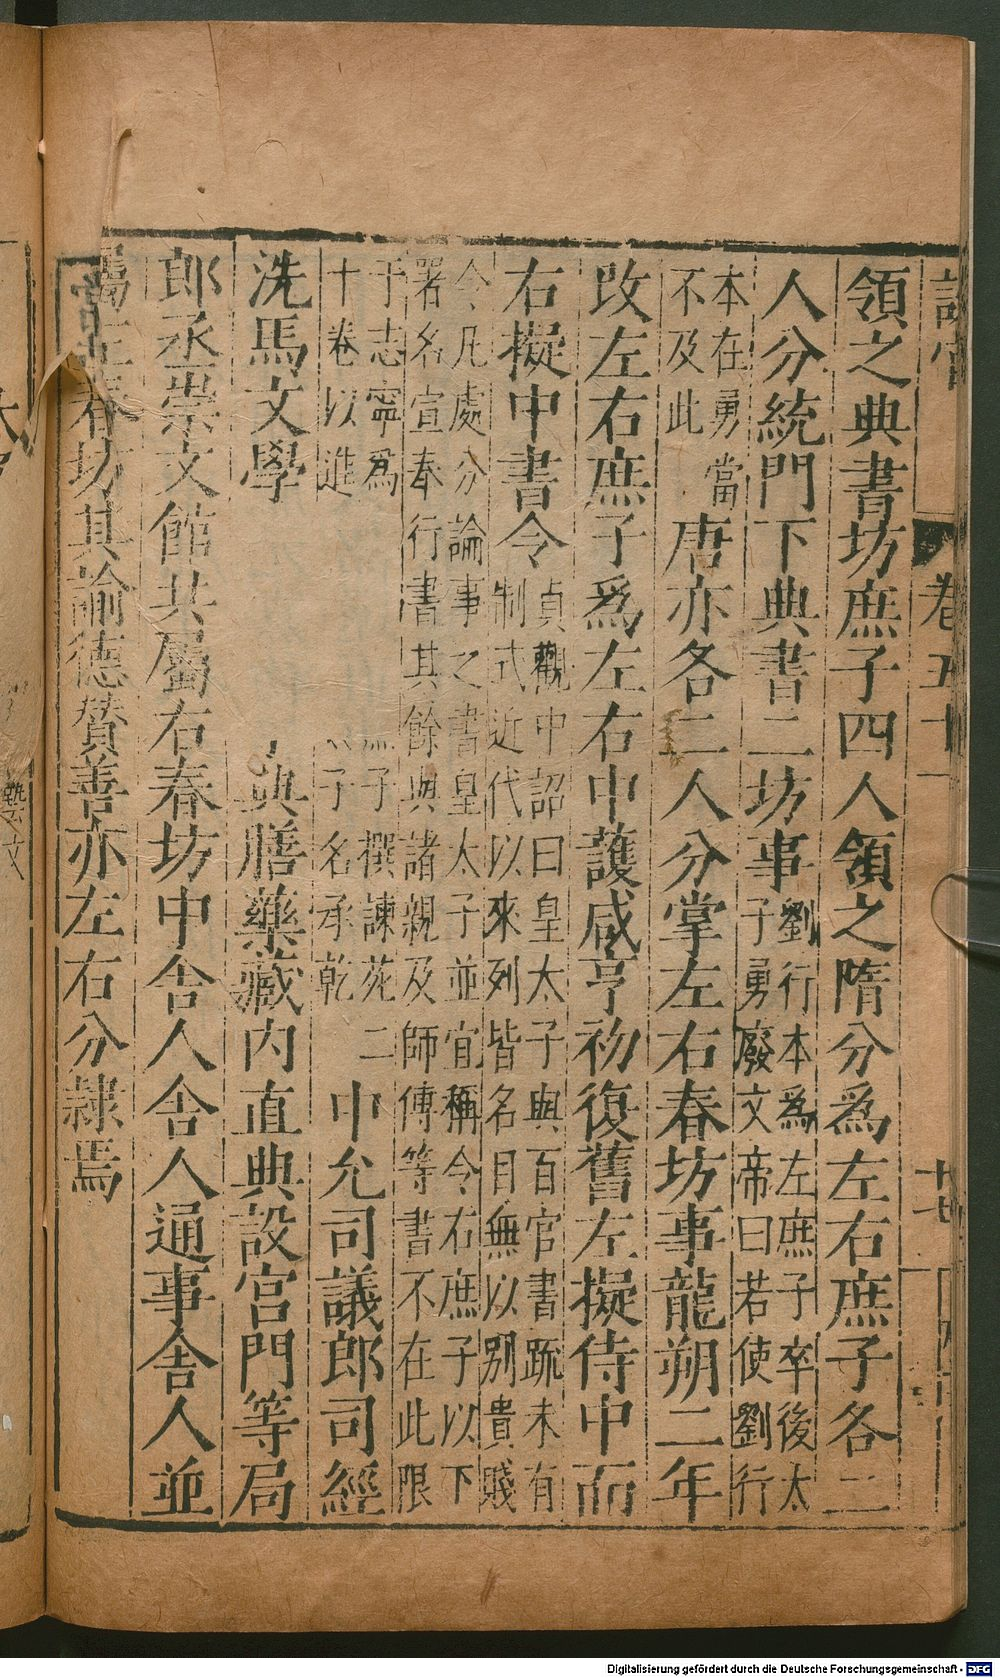 卷五十
領之典書坊庶子四人領之隋分爲左右庶子各二
人分統門下典書二坊事劉行本爲左庶子卒後太
子勇廢文帝曰若使劉行
本在勇當
不及此 唐亦各二人分掌左右春坊事龍朔二年
改左右庶子爲左右中護咸亨初復舊左擬侍中而
右擬中書令貞觀中詔曰皇太子與百官書疏未有
制式近代以來列皆名目無以別貴賤
今凡處分論事之書皇太子並宜稱令右庶子以下
署名宣奉行書其餘與諸親及師傅等書不在此限
于志寧爲 子撰諫苑二
十卷以進 子名承乾 中允司議郎司經
洗馬文學 典膳藥藏内直典設宮門等局
郎丞崇文館共屬右春坊中舍人舍人通事舍人並
屬 春坊其諭德贊善亦左右分隸焉
藝文
Digitalisierung gefördert durch die Deutsche Forschungsgemeinschaft - DFG